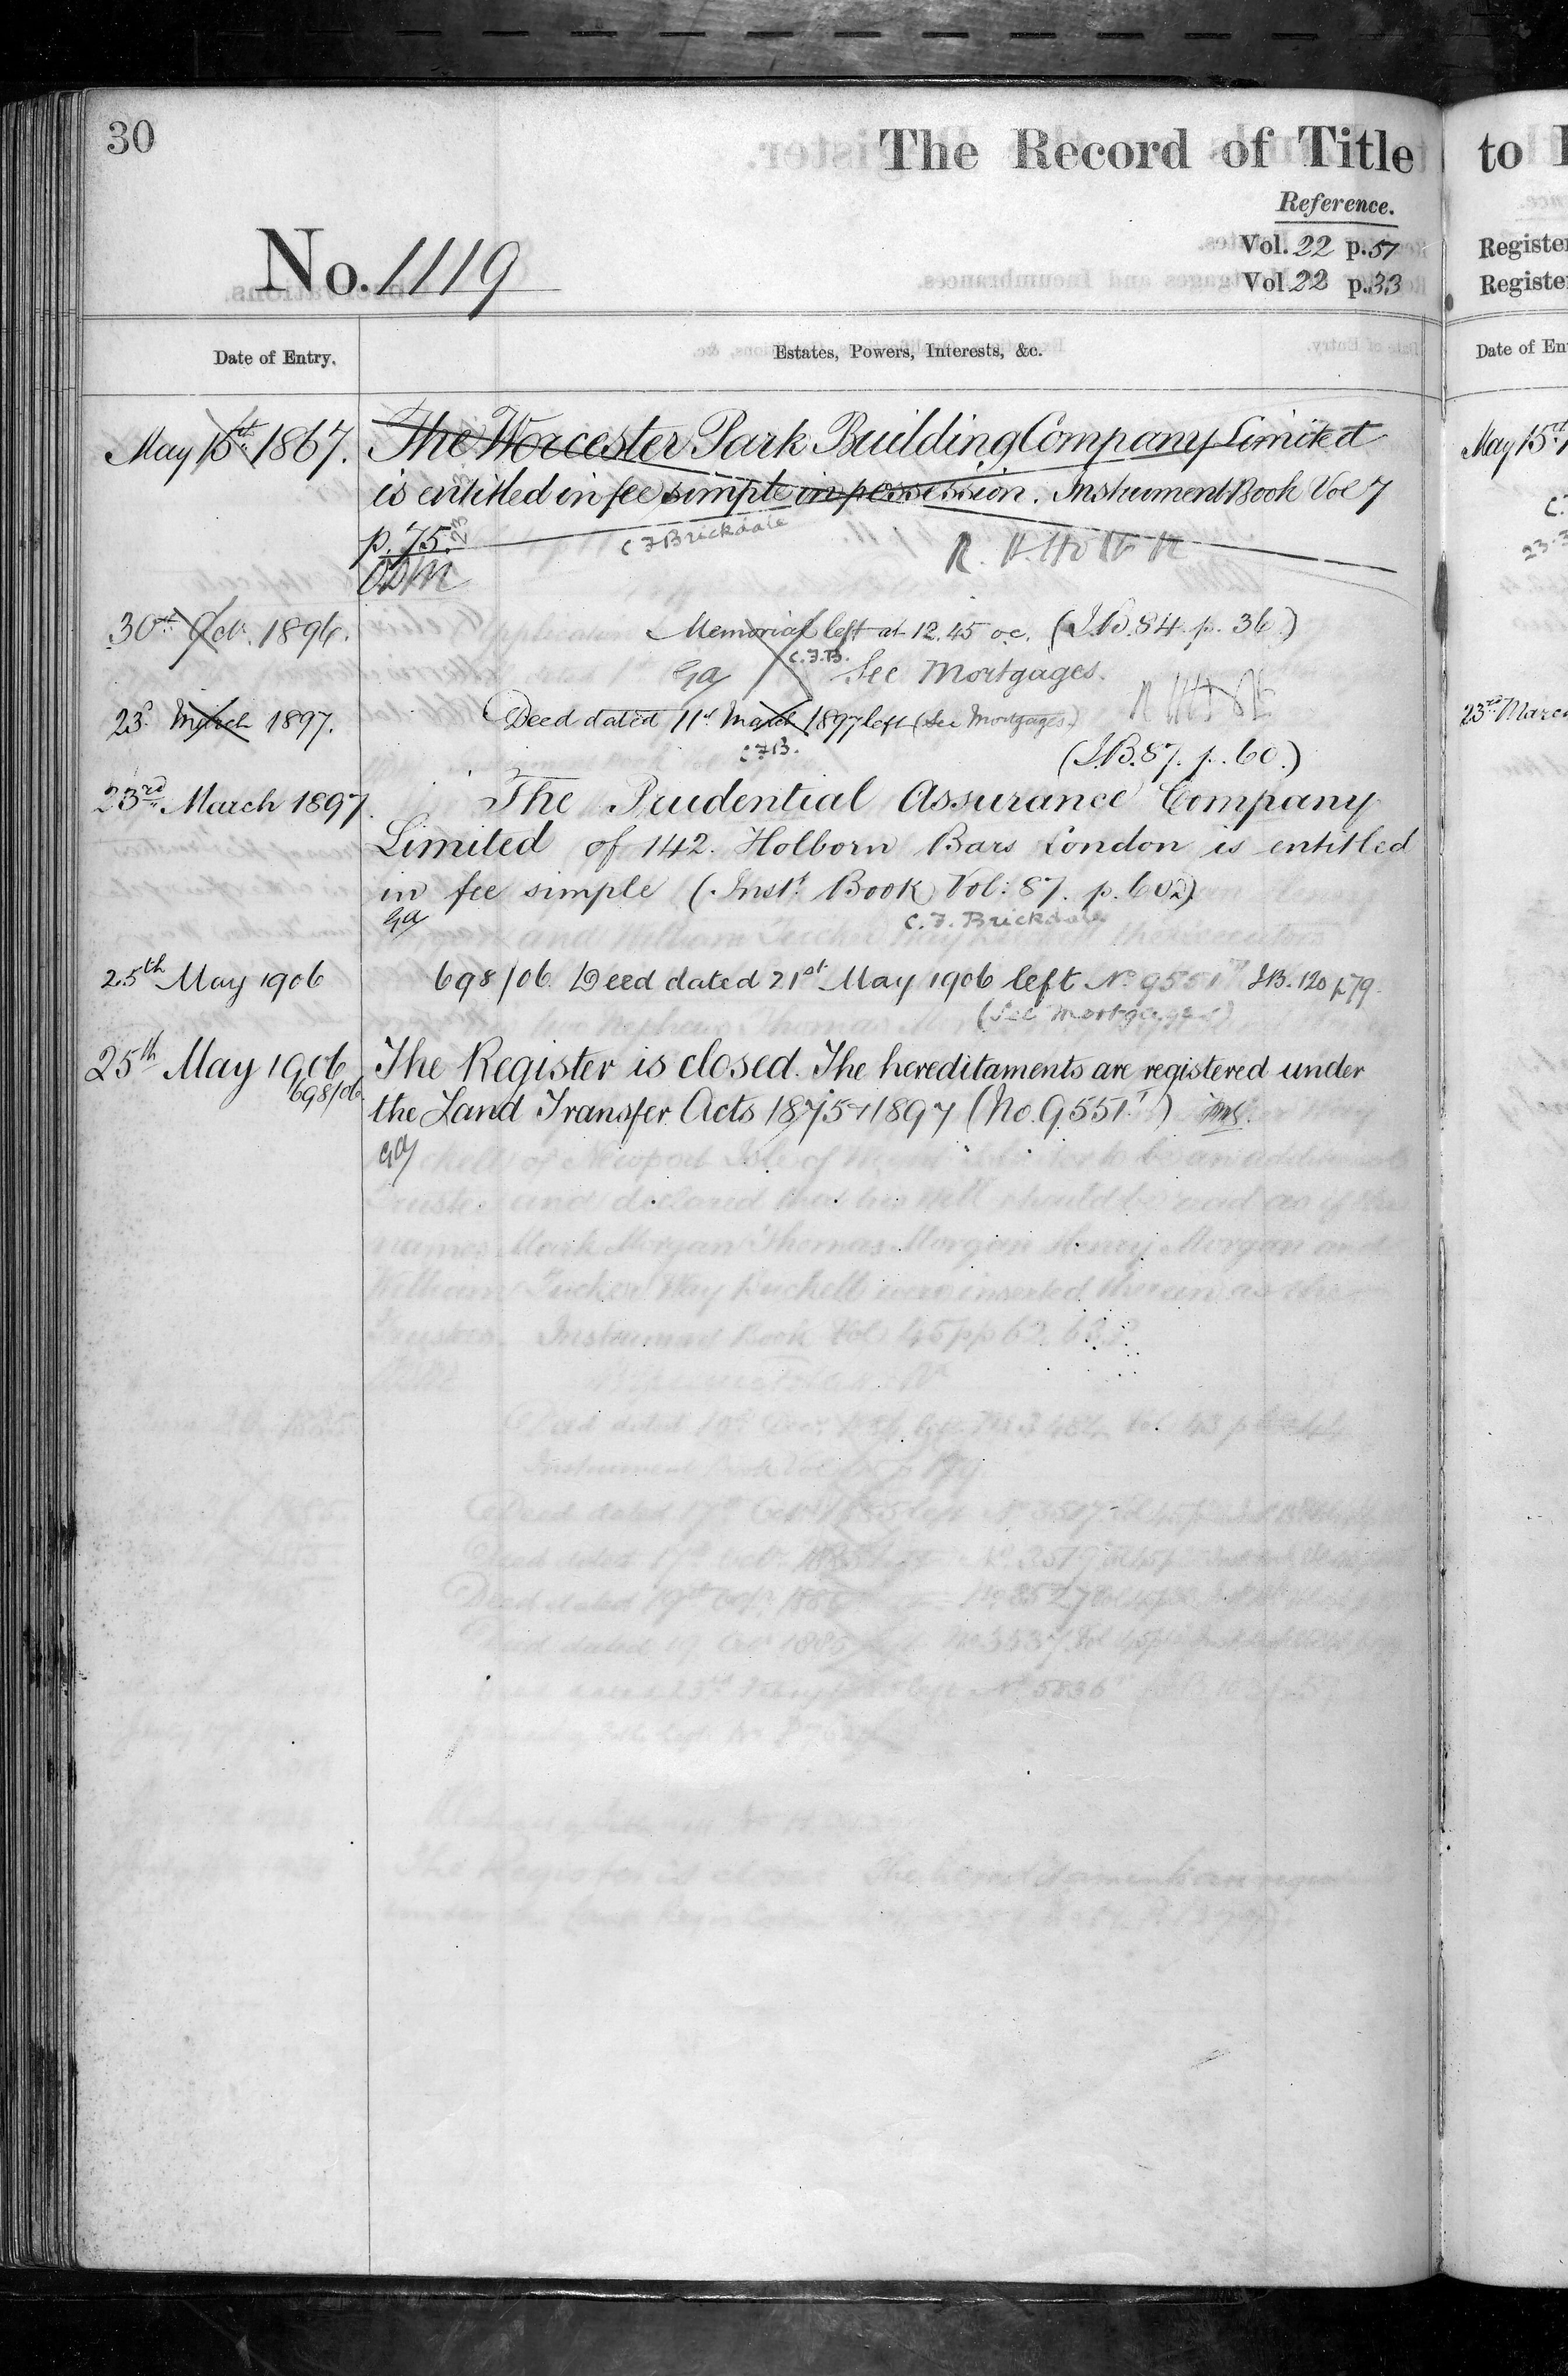 30
The Record of Title
to
Reference.
Vol. 22 p. 57
Vol 22 p. 33
No. 1119
Date of Entry.
Estates, Powers, Interests, &c.
Date of En
May 15th 1867. The Worcester Park Building Company Limited
is entitled in fee simple in possession. Instrument Book Vol 7
p. 75.
C F Brickdale
30th Oct. 1896. Memorial left at 12.45 oc. (I.B. 84. p. 36.)
C.F.B.
Ga See Mortgages.
23d March 1897. Deed dated 11th March 1897 left (See Mortgages.)
C.F.B.
(I.B. 87. p. 60.)
23rd March 1897. The Prudential Assurance Company
Limited of 142. Holborn Bars London is entitled
in fee simple (Instt Book Vol: 87. p. 60)
Ga C. F. Brickdale
25th May 1906 698/06. Deed dated 21st May 1906 left No 9551 I.B. 120 p. 79.
(See Mortgages)
25th May 1906 The Register is closed. The hereditaments are registered under
698/06
the Land Transfer Acts 1875 & 1897 (No. 9551)
Ga
Register
Register
May 15th
23rd March